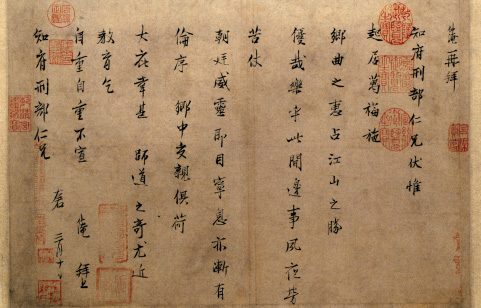 淹再拜
知府刑部仁兄伏惟
起居萬福施
鄉曲之惠占江山之勝
優哉樂乎此間邊事夙夜勞
苦仗
朝廷威靈即目寧息亦漸有
倫序 鄉中交親俱荷
大庇幸甚 師道之奇尤近
教育乞
自重自重不宣 淹 拜上
知府刑部仁兄 三月十日